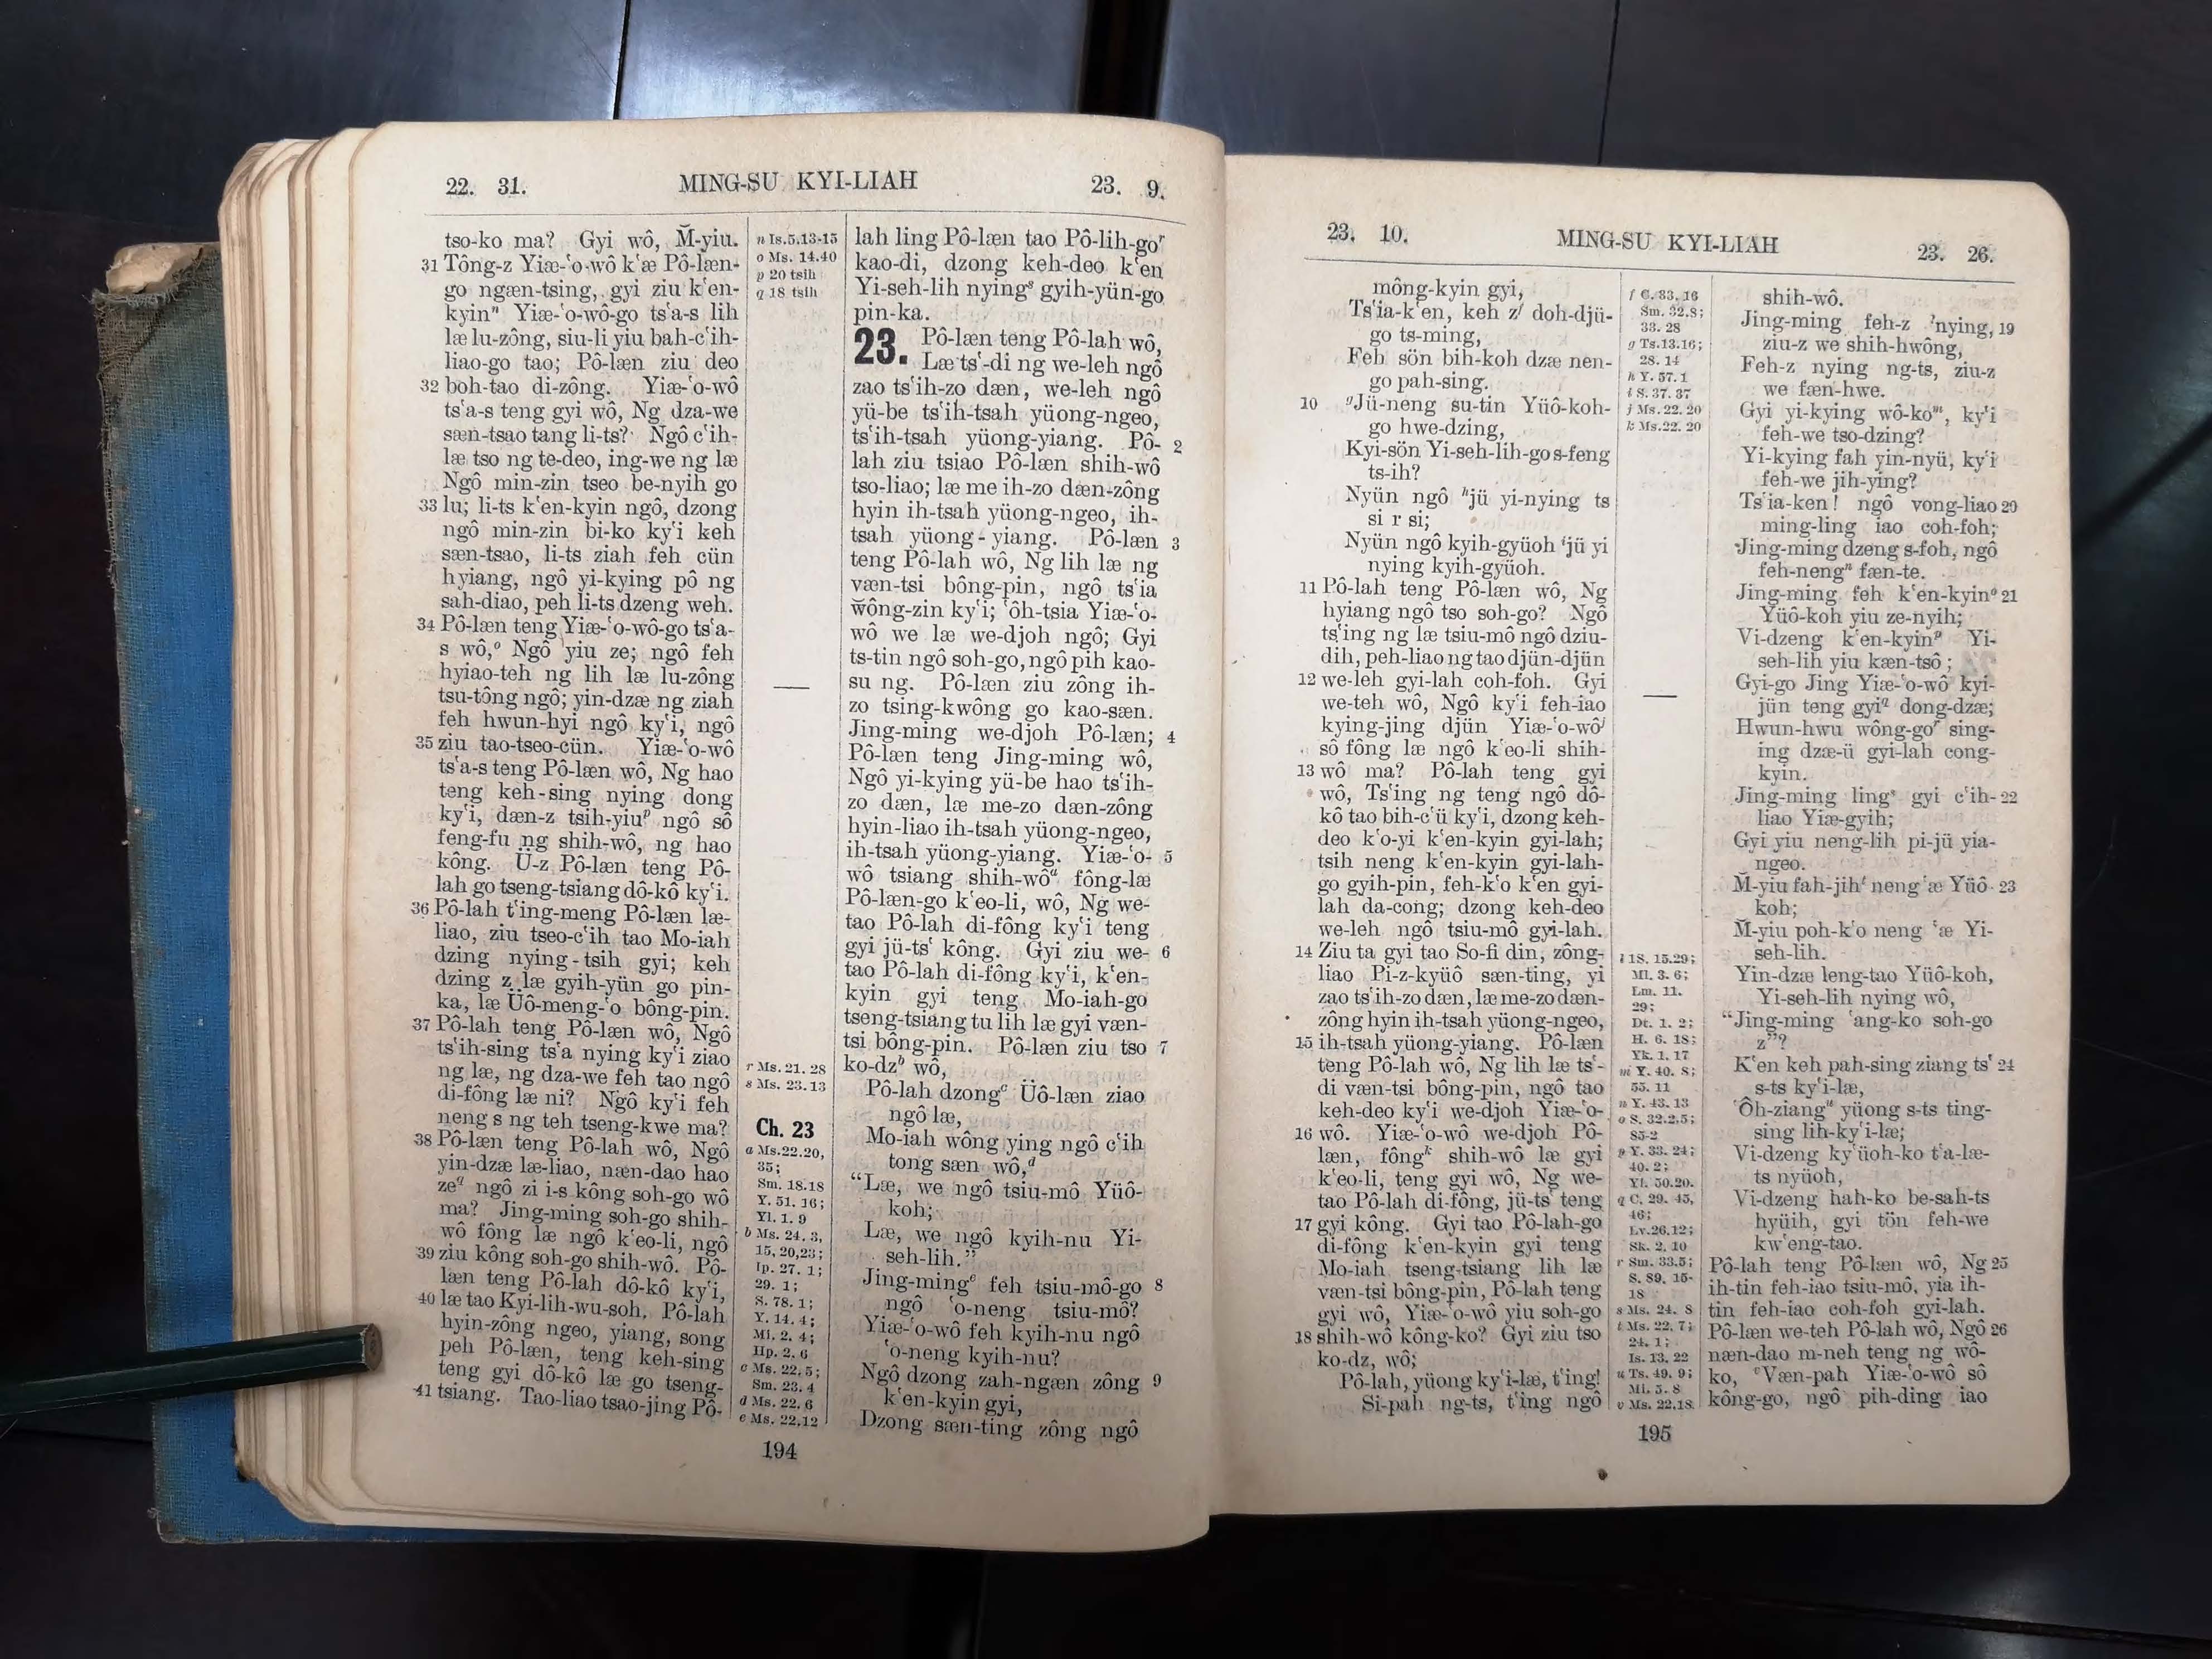 22. 31. MING-SU KYI-LIAH 23. 9.
tso-ko ma? Gyi wô, M̆-yiu.
31 Tông-z Yiæ-ʻo-wô kʻæ Pô-læn-
go ngæn-tsing, gyi ziu kʻen-
kyinⁿ Yiæ-ʻo-wô-go tsʻa-s lih
læ lu-zông, siu-li yiu bah-cʻih-
liao-go tao; Pô-læn ziu deo
32 boh-tao di-zông. Yiæ-ʻo-wô
tsʻa-s teng gyi wô, Ng dza-we
sæn-tsao tang li-ts? Ngô cʻih-
læ tso ng te-deo, ing-we ng læ
Ngô min-zin tseo be-nyih go
33 lu; li-ts kʻen-kyin ngô, dzong
ngô min-zin bi-ko kyʻi keh
sæn-tsao, li-ts ziah feh cün
hyiang, ngô yi-kying pô ng
sah-diao, peh li-ts dzeng weh.
34 Pô-læn teng Yiæ-ʻo-wô-go tsʻa-
s wô,ᵒ Ngô yiu ze; ngô feh
hyiao-teh ng lih læ lu-zông
tsu-tông ngô; yin-dzæ ng ziah
feh hwun-hyi ngô kyʻi, ngô
35 ziu tao-tseo-cün. Yiæ-ʻo-wô
tsʻa-s teng Pô-læn wô, Ng hao
teng keh-sing nying dong
kyʻi, dæn-z tsih-yiuᵖ ngô sô
feng-fu ng shih-wô, ng hao
kông. Ü-z Pô-læn teng Pô-
lah go tseng-tsiang dô-kô kyʻi.
36 Pô-lah tʻing-meng Pô-læn læ-
liao, ziu tseo-cʻih tao Mo-iah
dzing nying-tsih gyi; keh
dzing z læ gyih-yün go pin-
ka, læ Üô-meng-ʻo bông-pin.
37 Pô-lah teng Pô-læn wô, Ngô
tsʻih-sing tsʻa nying kyʻi ziao
ng læ, ng dza-we feh tao ngô
di-fông læ ni? Ngô kyʻi feh
neng s ng teh tseng-kwe ma?
38 Pô-læn teng Pô-lah wô, Ngô
yin-dzæ læ-liao, næn-dao hao
ze^q ngô zi i-s kông soh-go wô
ma? Jing-ming soh-go shih-
wô fông læ ngô kʻeo-li, ngô
39 ziu kông soh-go shih-wô. Pô-
læn teng Pô-lah dô-kô kyʻi,
40 læ tao Kyi-lih-wu-soh. Pô-lah
hyin-zông ngeo, yiang, song
peh Pô-læn, teng keh-sing
teng gyi dô-kô læ go tseng-
41 tsiang. Tao-liao tsao-jing Pô-
n Is.5.13-15
o Ms. 14.40
p 20 tsih
q 18 tsih
r Ms. 21. 28
s Ms. 23.13
Ch. 23
a Ms.22.20,
35;
Sm. 18.18
Y. 51. 16;
Yl. 1. 9
b Ms. 24. 3,
15, 20,23;
Ip. 27. 1;
29. 1;
S. 78. 1;
Y. 14. 4;
Mi. 2. 4;
Hp. 2. 6
c Ms. 22. 5;
Sm. 23. 4
d Ms. 22. 6
e Ms. 22.12
lah ling Pô-læn tao Pô-lih-goʳ
kao-di, dzong keh-deo kʻen
Yi-seh-lih nyingˢ gyih-yün-go
pin-ka.
23. Pô-læn teng Pô-lah wô,
Læ tsʻ-di ng we-leh ngô
zao tsʻih-zo dæn, we-leh ngô
yü-be tsʻih-tsah yüong-ngeo,
tsʻih-tsah yüong-yiang. Pô- 2
lah ziu tsiao Pô-læn shih-wô
tso-liao; læ me ih-zo dæn-zông
hyin ih-tsah yüong-ngeo, ih-
tsah yüong-yiang. Pô-læn 3
teng Pô-lah wô, Ng lih læ ng
væn-tsi bông-pin, ngô tsʻia
wông-zin kyʻi; ʻôh-tsia Yiæ-ʻo-
wô we læ we-djoh ngô; Gyi
ts-tin ngô soh-go, ngô pih kao-
su ng. Pô-læn ziu zông ih-
zo tsing-kwông go kao-sæn.
Jing-ming we-djoh Pô-læn; 4
Pô-læn teng Jing-ming wô,
Ngô yi-kying yü-be hao tsʻih-
zo dæn, læ me-zo dæn-zông
hyin-liao ih-tsah yüong-ngeo,
ih-tsah yüong-yiang. Yiæ-ʻo- 5
wô tsiang shih-wôᵃ fông-læ
Pô-læn-go kʻeo-li, wô, Ng we-
tao Pô-lah di-fông kyʻi teng
gyi jü-tsʻ kông. Gyi ziu we- 6
tao Pô-lah di-fông kyʻi, kʻen-
kyin gyi teng Mo-iah-go
tseng-tsiang tu lih læ gyi væn-
tsi bông-pin. Pô-læn ziu tso 7
ko-dzᵇ wô,
Pô-lah dzongᶜ Üô-læn ziao
ngô læ,
Mo-iah wông ying ngô cʻih
tong sæn wô,ᵈ
“Læ, we ngô tsiu-mô Yüô-
koh;
Læ, we ngô kyih-nu Yi-
seh-lih.”
Jing-mingᵉ feh tsiu-mô-go 8
ngô ʻo-neng tsiu-mô?
Yiæ-ʻo-wô feh kyih-nu ngô
ʻo-neng kyih-nu?
Ngô dzong zah-ngæn zông 9
kʻen-kyin gyi,
Dzong sæn-ting zông ngô
194
23. 10. MING-SU KYI-LIAH 23. 26.
mông-kyin gyi,
Tsʻia-kʻen, keh zᶠ doh-djü-
go ts-ming,
Feh sön bih-koh dzæ nen-
go pah-sing.
10 ᵍJü-neng su-tin Yüô-koh-
go hwe-dzing,
Kyi-sön Yi-seh-lih-go s-feng
ts-ih?
Nyün ngô ʰjü yi-nying ts
si r si;
Nyün ngô kyih-gyüoh ⁱjü yi
nying kyih-gyüoh.
11 Pô-lah teng Pô-læn wô, Ng
hyiang ngô tso soh-go? Ngô
tsʻing ng læ tsiu-mô ngô dziu-
dih, peh-liao ng tao djün-djün
12 we-leh gyi-lah coh-foh. Gyi
we-teh wô, Ngô kyʻi feh-iao
kying-jing djün Yiæ-ʻo-wôʲ
sô fông læ ngô kʻeo-li shih-
13 wô ma? Pô-lah teng gyi
wô, Tsʻing ng teng ngô dô-
kô tao bih-cʻü kyʻi, dzong keh-
deo kʻo-yi kʻen-kyin gyi-lah;
tsih neng kʻen-kyin gyi-lah-
go gyih-pin, feh-kʻo kʻen gyi-
lah da-cong; dzong keh-deo
we-leh ngô tsiu-mô gyi-lah.
14 Ziu ta gyi tao So-fi din, zông-
liao Pi-z-kyüô sæn-ting, yi
zao tsʻih-zo dæn, læ me-zo dæn-
zông hyin ih-tsah yüong-ngeo,
15 ih-tsah yüong-yiang. Pô-læn
teng Pô-lah wô, Ng lih læ tsʻ-
di væn-tsi bông-pin, ngô tao
keh-deo kyʻi we-djoh Yiæ-ʻo-
16 wô. Yiæ-ʻo-wô we-djoh Pô-
læn, fôngᵏ shih-wô læ gyi
kʻeo-li, teng gyi wô, Ng we-
tao Pô-lah di-fông, jü-tsʻ teng
17 gyi kông. Gyi tao Pô-lah-go
di-fông kʻen-kyin gyi teng
Mo-iah tseng-tsiang lih læ
væn-tsi bông-pin, Pô-lah teng
gyi wô, Yiæ-ʻo-wô yiu soh-go
18 shih-wô kông-ko? Gyi ziu tso
ko-dz, wô;
Pô-lah, yüong kyʻi-læ, tʻing!
Si-pah ng-ts, tʻing ngô
f C. 33. 16
Sm. 32.8;
33. 28
g Ts.13.16;
28. 14
h Y. 57. 1
i S. 37. 37
j Ms. 22. 20
k Ms.22. 20
l 1S. 15.29;
Ml. 3. 6;
Lm. 11.
29;
Dt. 1. 2;
H. 6. 18;
Yk. 1. 17
m Y. 40. 8;
55. 11
n Y. 43. 13
o S. 32.2,5;
85-2
p Y. 33. 24;
40. 2;
Yl. 50.20.
q C. 29. 45,
46;
Lv.26.12;
Sk. 2. 10
r Sm. 33.5;
S. 89. 15-
18
s Ms. 24. 8
t Ms. 22. 7;
24. 1;
Is. 13. 22
u Ts. 49. 9;
Mi. 5. 8
v Ms. 22.18.
shih-wô.
Jing-ming feh-z ˡnying, 19
ziu-z we shih-hwông,
Feh-z nying ng-ts, ziu-z
we fæn-hwe.
Gyi yi-kying wô-koᵐ, kyʻi
feh-we tso-dzing?
Yi-kying fah yin-nyü, kyʻi
feh-we jih-ying?
Tsʻia-ken! ngô vong-liao 20
ming-ling iao coh-foh;
Jing-ming dzeng s-foh, ngô
feh-nengⁿ fæn-te.
Jing-ming feh kʻen-kyinᵒ 21
Yüô-koh yiu ze-nyih;
Vi-dzeng kʻen-kyinᵖ Yi-
seh-lih yiu kæn-tsô;
Gyi-go Jing Yiæ-ʻo-wô kyi-
jün teng gyi^q dong-dzæ;
Hwun-hwu wông-goʳ sing-
ing dzæ-ü gyi-lah cong-
kyin.
Jing-ming lingˢ gyi cʻih- 22
liao Yiæ-gyih;
Gyi yiu neng-lih pi-jü yia-
ngeo.
M̆-yiu fah-jihᵗ neng ʻæ Yüô- 23
koh;
M̆-yiu poh-kʻo neng ʻæ Yi-
seh-lih.
Yin-dzæ leng-tao Yüô-koh,
Yi-seh-lih nying wô,
“Jing-ming ʻang-ko soh-go
z”?
Kʻen keh pah-sing ziang tsʻ 24
s-ts kyʻi-læ,
ʻÔh-ziangᵘ yüong s-ts ting-
sing lih-kyʻi-læ;
Vi-dzeng kyʻüoh-ko tʻa-læ-
ts nyüoh,
Vi-dzeng hah-ko be-sah-ts
hyüih, gyi tön feh-we
kwʻeng-tao.
Pô-lah teng Pô-læn wô, Ng 25
ih-tin feh-iao tsiu-mô, yia ih-
tin feh-iao coh-foh gyi-lah.
Pô-læn we-teh Pô-lah wô, Ngô 26
næn-dao m-neh teng ng wô-
ko, ᵛVæn-pah Yiæ-ʻo-wô sô
kông-go, ngô pih-ding iao
195